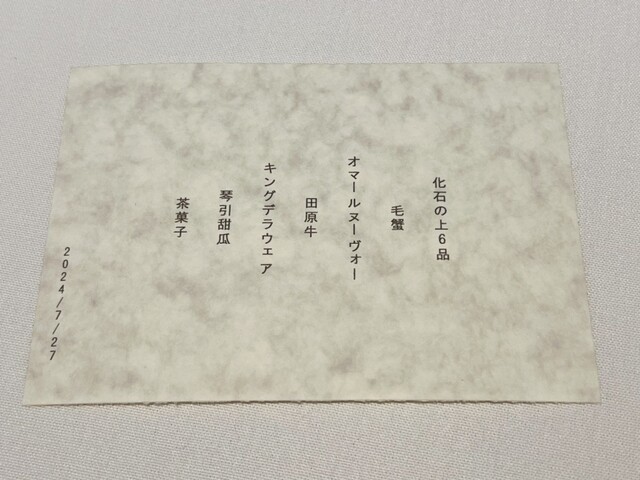 化石の上6品
毛蟹
オマールヌーヴォー
田原牛
キングデラウェア
琴引甜瓜
茶菓子
2024/7/27